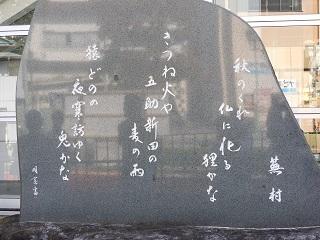 蕪村
秋のくれ
仏に化る
狸かな
きつね火や
五助新田の
麦の雨
猿どのの
夜寒訪ゆく
兎かな